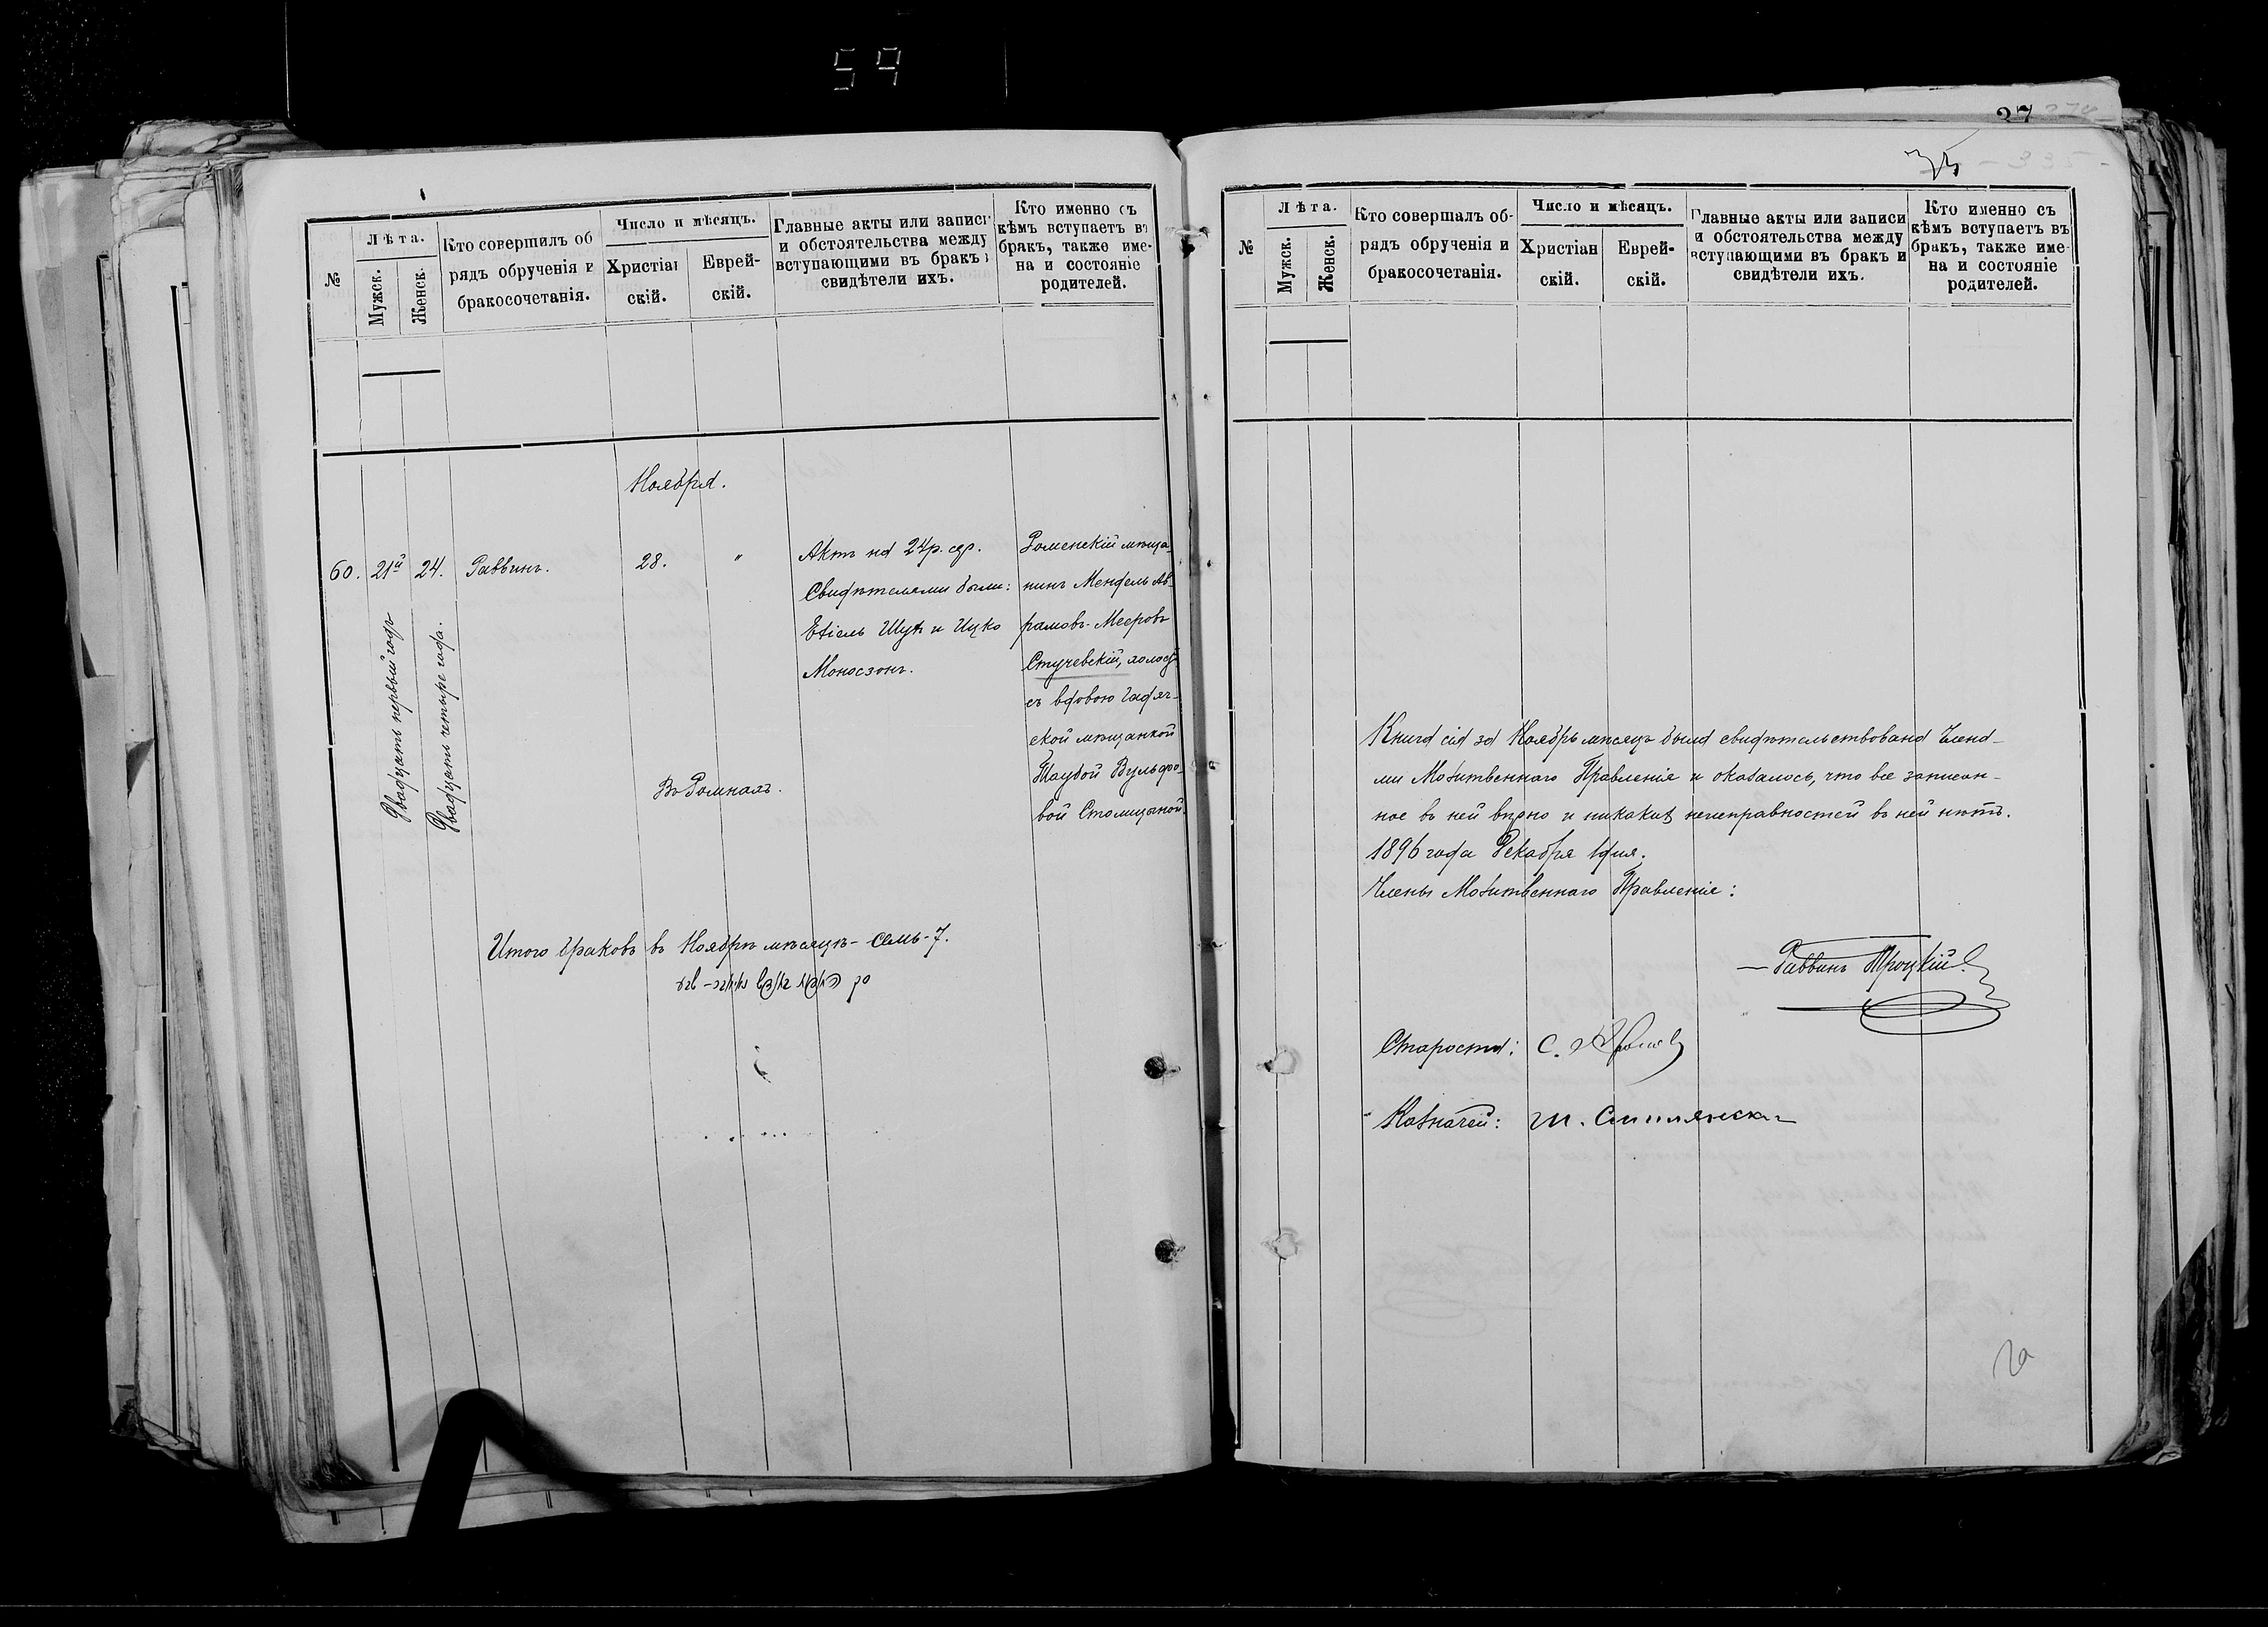 59
№
Лѣта.
Мужск.
Женск.
Кто совершилъ об
рядъ обрученія и
бракосочетанія.
Число и мѣсяцъ.
Христіан
скій.
Еврей-
скій.
Главные акты или записи
и обстоятельства между
вступающими въ бракъ и
свидѣтели ихъ.
Кто именно съ
кѣмъ вступаетъ въ
бракъ, также име-
на и состояніе
родителей.
Ноября.
60. 21й 24. Раввинъ. 28. "
Двадцать первый годъ
Двадцать четыре года.
Актъ на 24 р. сер.
Свидѣтелями были:
Ехіель Шуб и Ицко
Моносзонъ.
Роменскій мѣща-
нинъ Мендель Ав-
рамовъ-Мееровъ
Стучевскій, холост
съ вдовою Гадяч-
ской мѣщанкой
Таубой Вульфо-
вой Столицыной.
Въ Ромнахъ.
Итого браковъ въ Ноябрѣ мѣсяцѣ - семь - 7.
37
35
- 335 -
№
Лѣта.
Мужск.
Женск.
Кто совершалъ об-
рядъ обрученія и
бракосочетанія.
Число и мѣсяцъ.
Христіан
скій.
Еврей-
скій.
Главные акты или записи
и обстоятельства между
вступающими въ бракъ и
свидѣтели ихъ.
Кто именно съ
кѣмъ вступаетъ въ
бракъ, также име-
на и состояніе
родителей.
Книга сія за Ноябрь мѣсяцъ была свидѣтельствована Члена-
ми Молитвеннаго Правленія и оказалось, что все записан-
ное въ ней вѣрно и никакихъ неисправностей въ ней нѣтъ.
1896 года Декабря 1 дня.
Члены Молитвеннаго Правленія:
Раввинъ Троцкій
Староста: С.
Казначей: Ш.